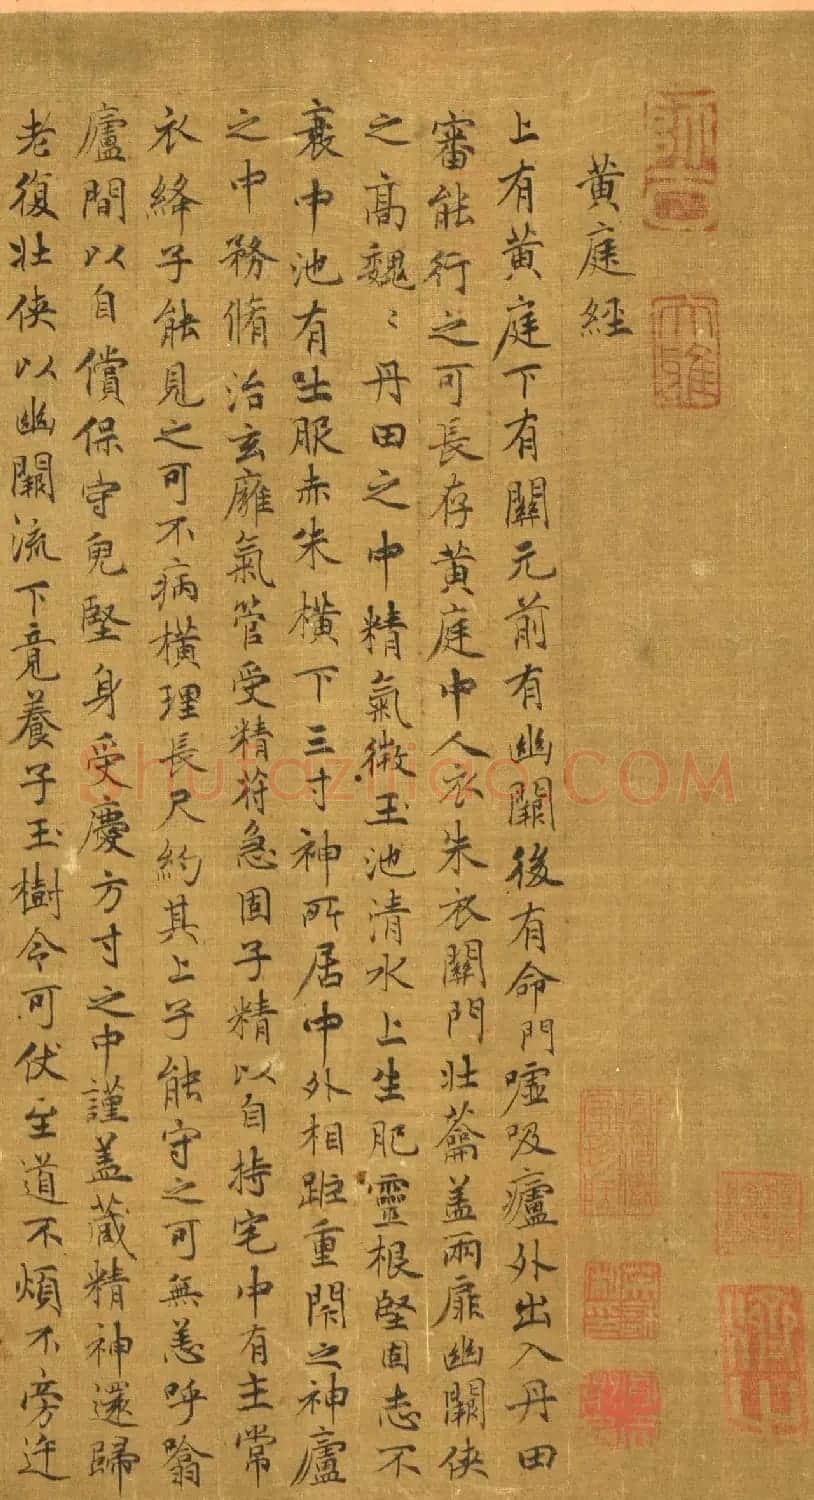 黄庭經
上有黄庭下有關元前有幽闕後有命門嘘吸廬外出入丹田
審能行之可長存黄庭中人衣朱衣關門壯蘥盖兩扉幽闕俠
之高魏〻丹田之中精氣微玉池清水上生肥靈根堅固志不
衰中池有士服赤朱橫下三寸神所居中外相距重閇之神廬
之中務脩治玄廱氣管受精符急固子精以自持宅中有士常
衣絳子能見之可不病橫理長尺約其上子能守之可無恙呼噏
廬間以自償保守皃堅身受慶方寸之中謹盖藏精神還歸
老復壯俠以幽闕流下竟養子玉樹令可伏至道不煩不旁迕
大雅
shufaziliao.COM